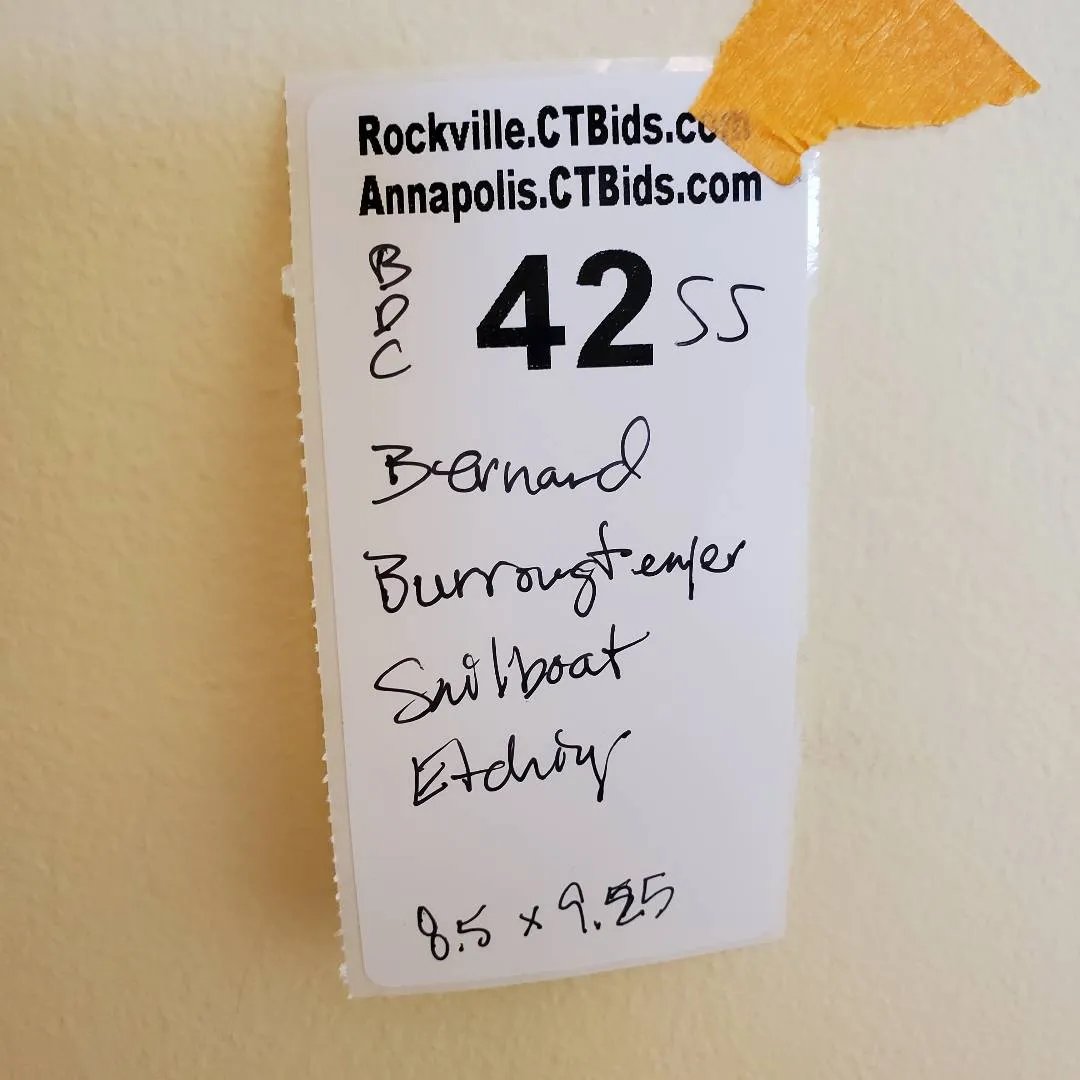 Rockville.CTBids.com
Annapolis.CTBids.com
B
D
C
42 SS
Bernard
Sailboat
Etching
8.5 x 9.25